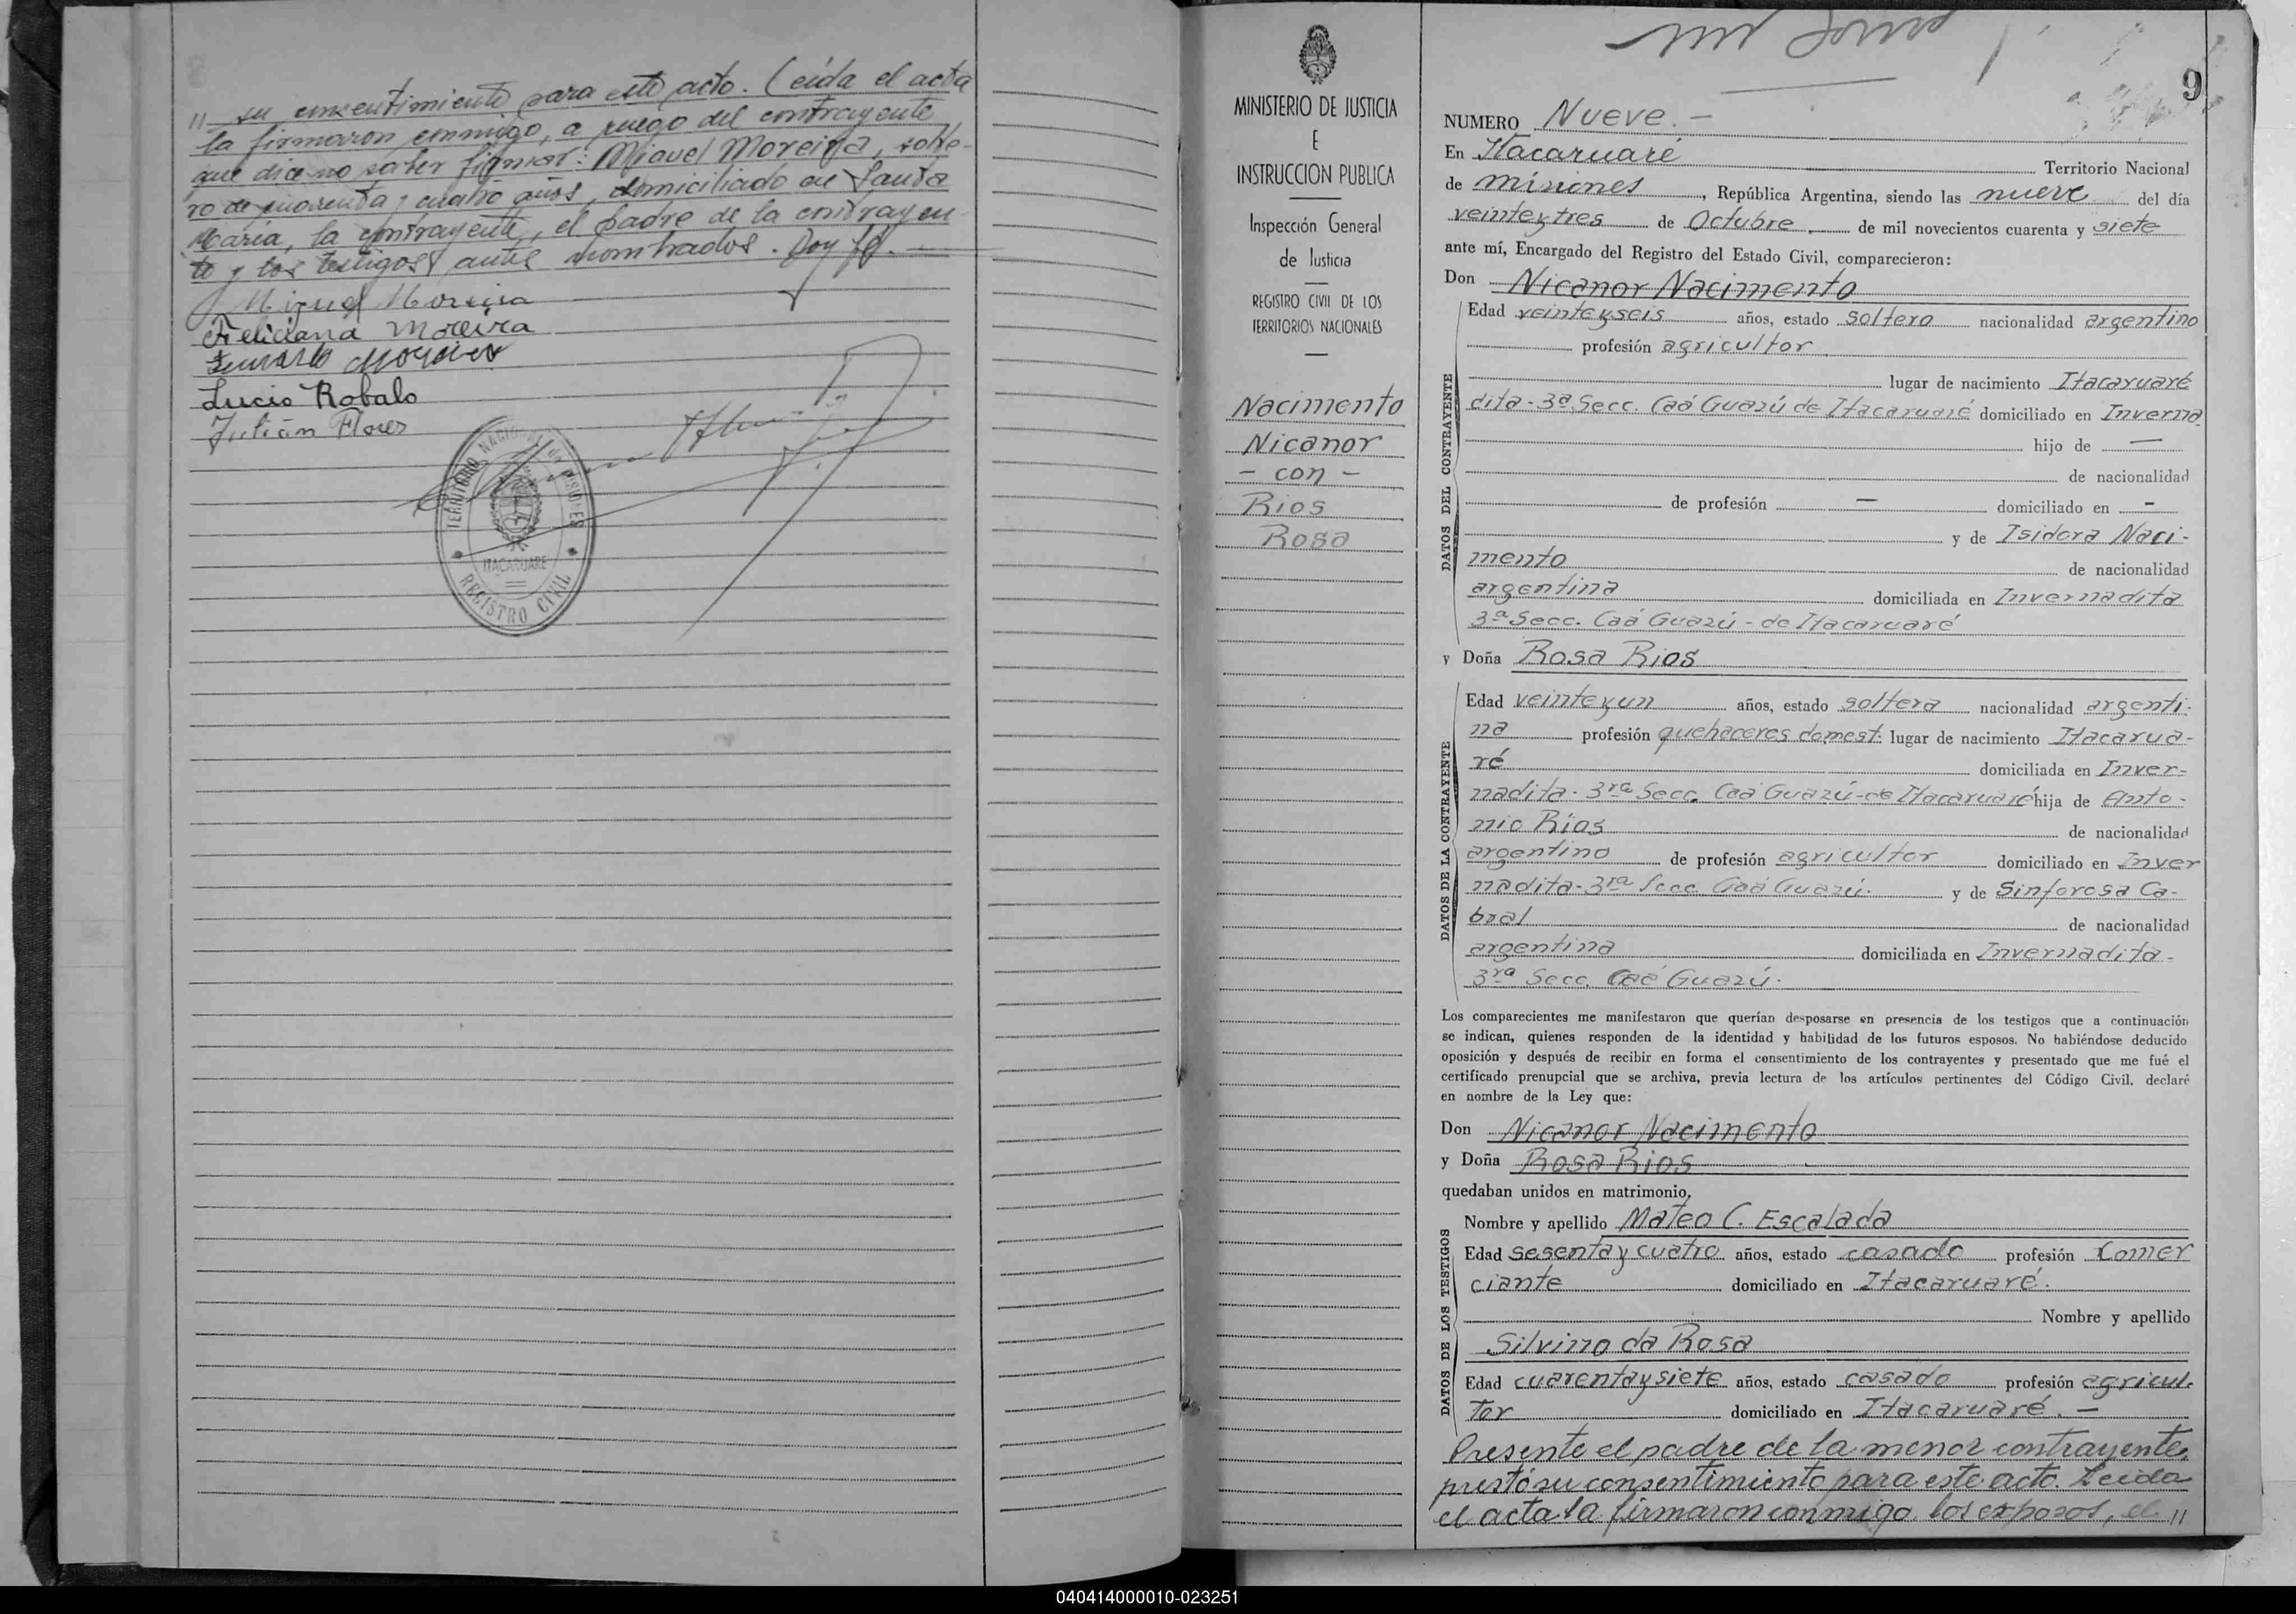 // su consentimiento para este acto. Leída el acta
la firmaron conmigo, a ruego del contrayente
que dice no saber firmar: Miguel Moreira, solte-
ro de cuarenta y cuatro años, domiciliado en Santa
María, la contrayente, el padre de la contrayen-
te y los testigos antes nombrados. Doy fé.
Miguel Moreira
Feliciana Moreira
Lucio Robalo
Julián Flores
TERRITORIO NACIONAL DE MISIONES
ITACARUARE
REGISTRO CIVIL
MINISTERIO DE JUSTICIA
E
INSTRUCCION PUBLICA
Inspección General
de Justicia
REGISTRO CIVIL DE LOS
TERRITORIOS NACIONALES
Nacimento
Nicanor
- con -
Rios
Rosa
9
NUMERO Nueve. -
En Itacaruaré Territorio Nacional
de misiones, República Argentina, siendo las nueve del día
veinteytres de Octubre de mil novecientos cuarenta y siete
ante mí, Encargado del Registro del Estado Civil, comparecieron:
Don Nicanor Nacimento
DATOS DEL CONTRAYENTE
Edad veinteyseis años, estado soltero nacionalidad argentino
profesión agricultor
lugar de nacimiento Itacaruaré
domiciliado en Inverna
dita - 3ª Secc. Caá Guazú de Itacaruaré
hijo de —
de nacionalidad
de profesión — domiciliado en -
y de Isidora Naci-
mento de nacionalidad
argentina domiciliada en Invernadita
3ª Secc. Caá Guazú - de Itacaruaré
y Doña Rosa Rios
DATOS DE LA CONTRAYENTE
Edad veinteyun años, estado soltera nacionalidad argenti-
na profesión quehaceres domest. lugar de nacimiento Itacarua-
ré domiciliada en Inver-
nadita - 3ra Secc. Caá Guazú - de Itacaruaré hija de Anto-
nio Ríos de nacionalidad
argentino de profesión agricultor domiciliado en Inver
nadita - 3ra Secc. Caá Guazú. y de Sinforosa Ca-
bral de nacionalidad
argentina domiciliada en Invernadita -
3ra Secc. Caá Guazú.
Los comparecientes me manifestaron que querían desposarse en presencia de los testigos que a continuación
se indican, quienes responden de la identidad y habilidad de los futuros esposos. No habiéndose deducido
oposición y después de recibir en forma el consentimiento de los contrayentes y presentado que me fué el
certificado prenupcial que se archiva, previa lectura de los artículos pertinentes del Código Civil. declaré
en nombre de la Ley que:
Don Nicanor Nacimento
y Doña Rosa Rios
quedaban unidos en matrimonio,
DATOS DE LOS TESTIGOS
Nombre y apellido Mateo C. Escalada
Edad sesenta y cuatro años, estado casado profesión Comer
ciante domiciliado en Itacaruaré.
Nombre y apellido
Silvino da Rosa
Edad cuarentaysiete años, estado casado profesión agricul-
tor domiciliado en Itacaruaré. —
Presente el padre de la menor contrayente,
prestó su consentimiento para este acto. Leida
el acta la firmaron conmigo los esposos, el //
040414000010-023251